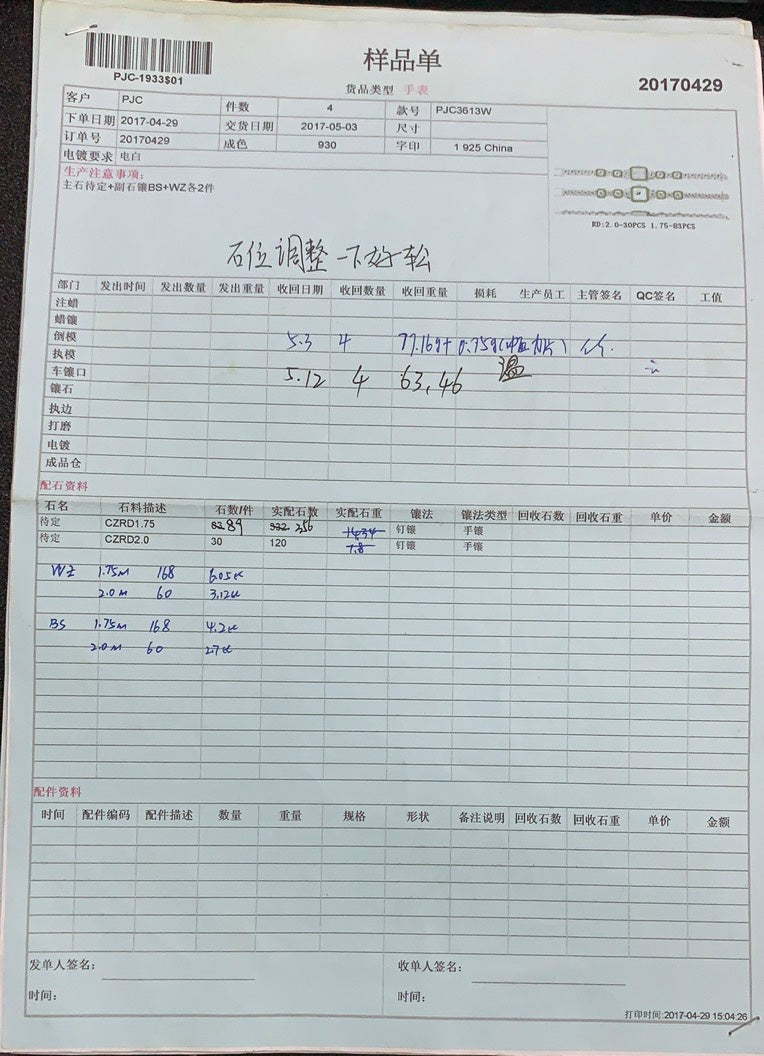 样品单
PJC-1933$01
货品类型 手表
20170429
客户 PJC 件数 4 款号 PJC3613W
下单日期 2017-04-29 交货日期 2017-05-03 尺寸
订单号 20170429 成色 930 字印 1 925 China
电镀要求 电白
生产注意事项:
主石待定+副石镶BS+WZ各2件
RD:2.0-30PCS 1.75-83PCS
石位调整一下好松
部门 发出时间 发出数量 发出重量 收回日期 收回数量 收回重量 损耗 生产员工 主管签名 QC签名 工值
注蜡
蜡镶
倒模 5.3 4 77.16g+0.75g
执模
车镶口 5.12 4 63.46
镶石
执边
打磨
电镀
成品仓
配石资料
石名 石料描述 石数/件 实配石数 实配石重 镶法 镶法类型 回收石数 回收石重 单价 金额
待定 CZRD1.75 82 89 332 356 14.34 钉镶 手镶
待定 CZRD2.0 30 120 7.8 钉镶 手镶
WZ 1.75m 168 6.05ct
2.0m 60 3.12ct
BS 1.75m 168 4.2ct
2.0m 60 2.7ct
配件资料
时间 配件编码 配件描述 数量 重量 规格 形状 备注说明 回收石数 回收石重 单价 金额
发单人签名: 收单人签名:
时间: 时间:
打印时间:2017-04-29 15:04:26